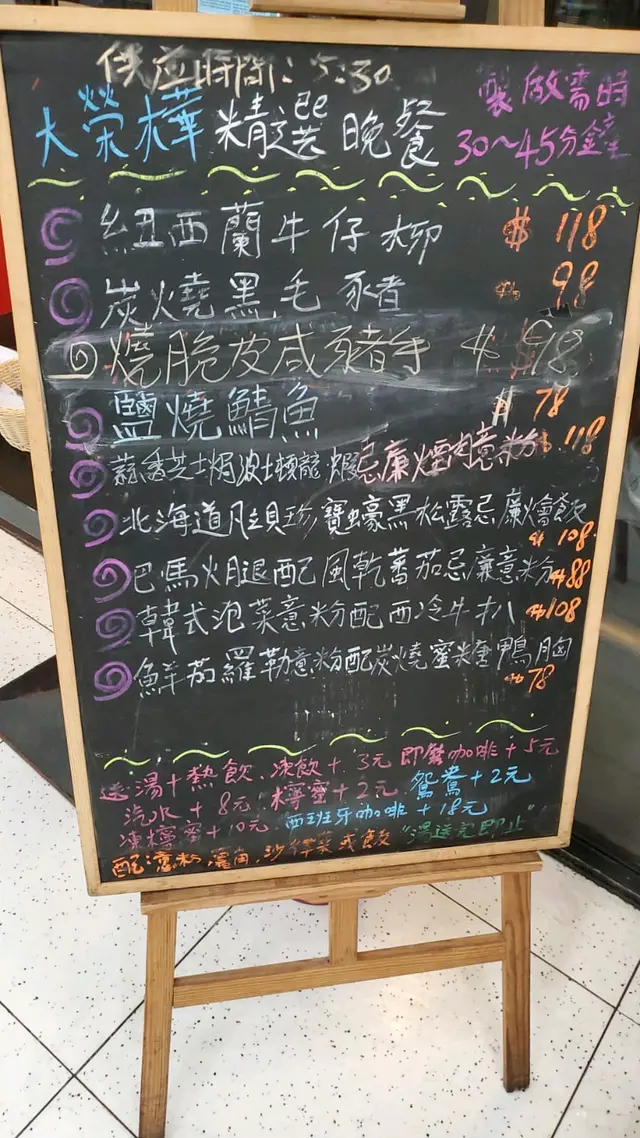 供应時間：5:30
大榮樺 精選 晚餐
製做需時
30～45分鐘
紐西蘭牛仔柳 $118
炭燒黑毛豬 $98
燒脆皮咸豬手 $98
鹽燒鯖魚 $78
蒜香芝士焗波士頓龍蝦忌廉煙肉意粉 $118
北海道帶子珍寶蠔黑松露忌廉燴飯 $108
巴馬火腿配風乾蕃茄忌廉意粉 $88
韓式泡菜意粉配西冷牛扒 $108
鮮茄羅勒意粉配炭燒蜜糖鴨胸 $78
送湯+熱飲、凍飲+3元 即磨咖啡+5元
汽水+8元 檸蜜+2元 鴛鴦+2元
凍檸蜜+10元 西班牙咖啡+18元
配:意粉,薯角,沙律菜或飯 "湯送完即止"